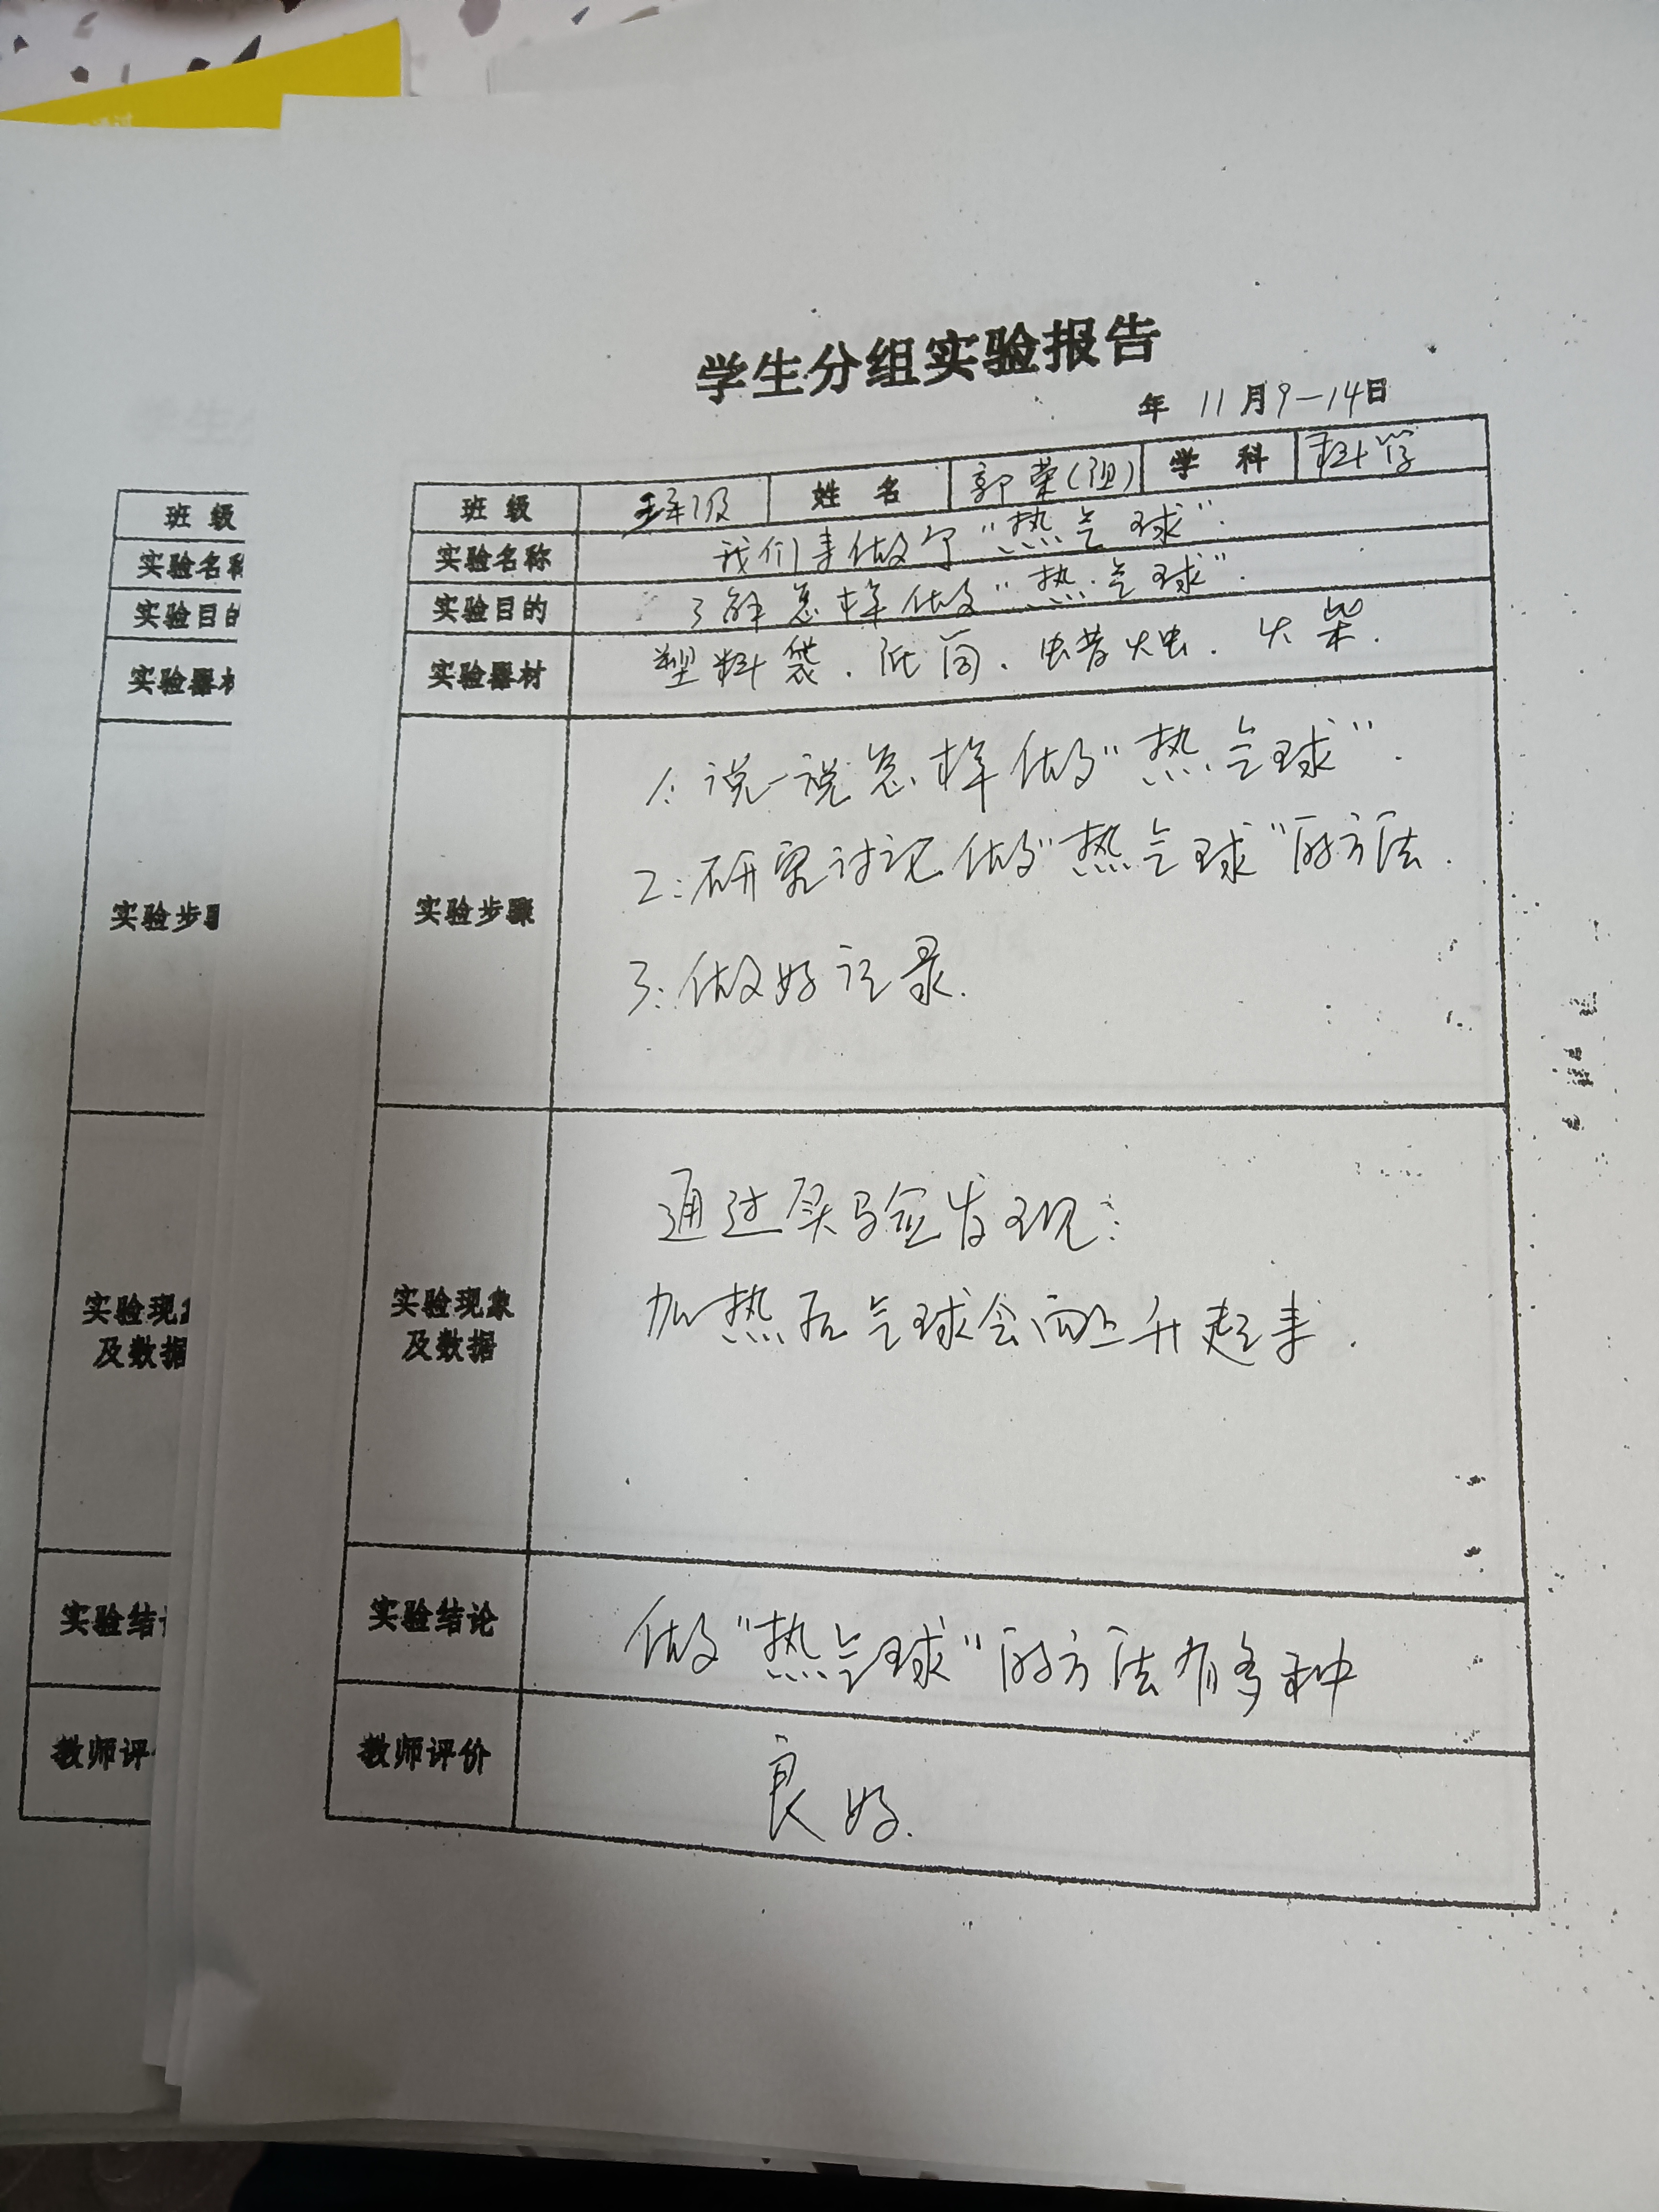 学生分组实验报告
年 11月9-14日
班级 姓名 郭荣(组) 学科 科学
实验名称 我们来做个"热气球".
实验目的 了解怎样做"热气球".
实验器材 塑料袋. 纸筒. 蜡烛. 火柴.
1: 说一说怎样做"热气球".
2: 研究讨论做"热气球"的方法.
实验步骤
3: 做好记录.
通过实验发现:
实验现象
及数据
加热后气球会上升起来.
实验结论 做"热气球"的方法有多种
教师评价 良好.
班级
实验名称
实验目的
实验器材
实验步
实验现
及数据
实验结
教师评